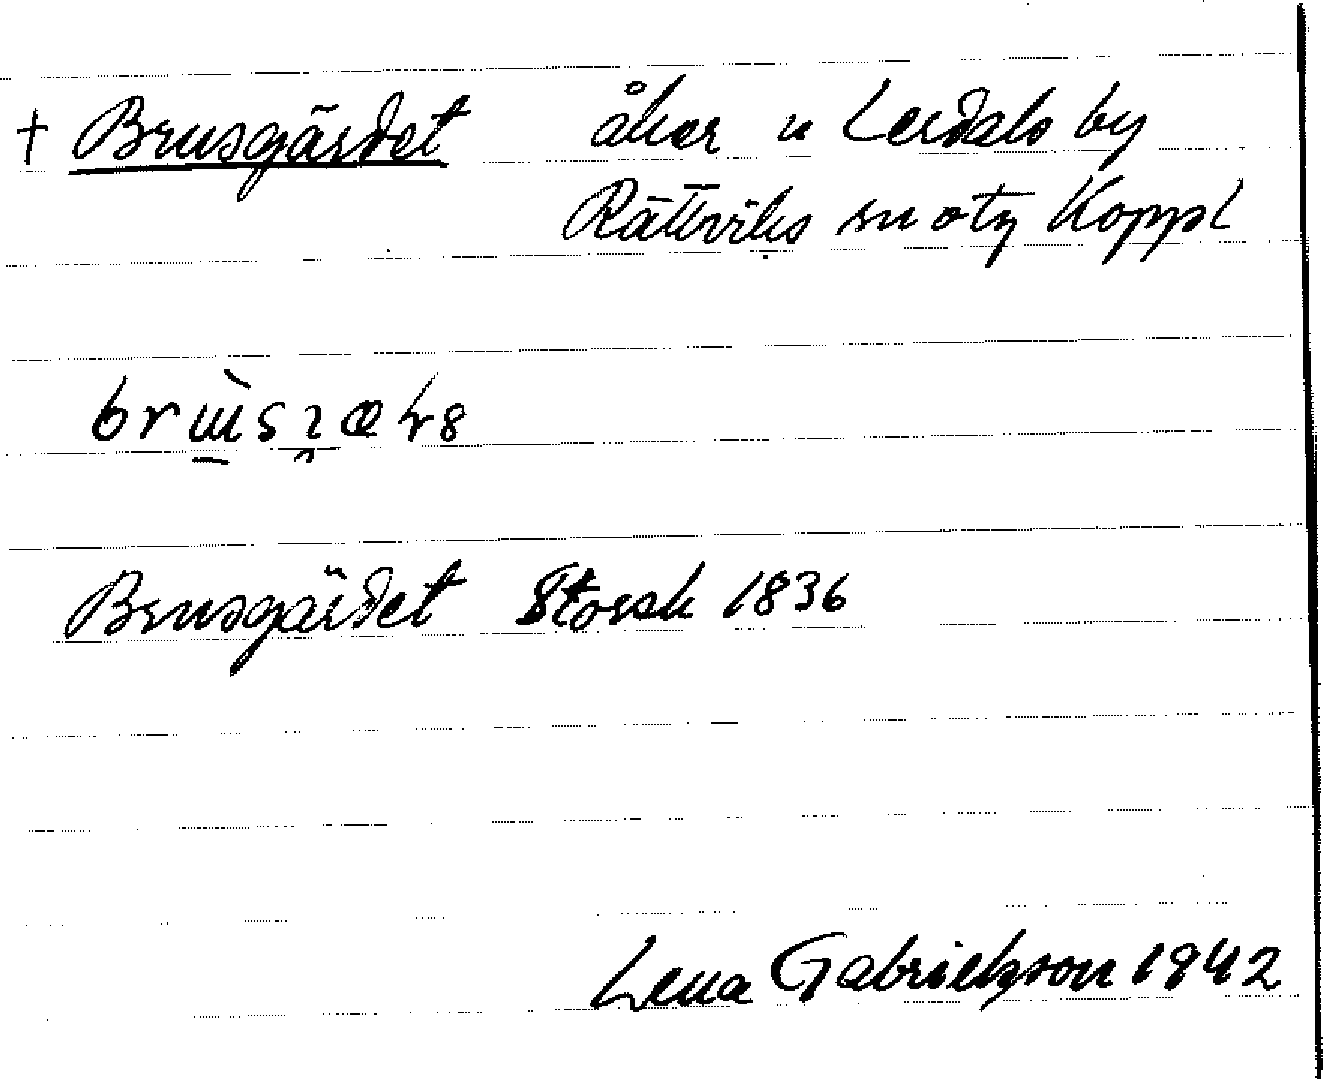 † Brusgärdet åker u Lerdals by
Rättviks sn o tg Koppl
Brusgärdet Storsk 1836
Lena Gabrielsson 1942